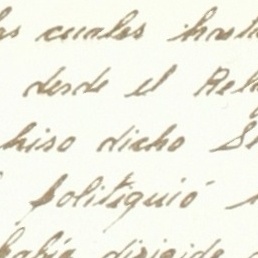 los cuales hasta
desde el Rel
hiso dicho S
politiquió
había dirigido